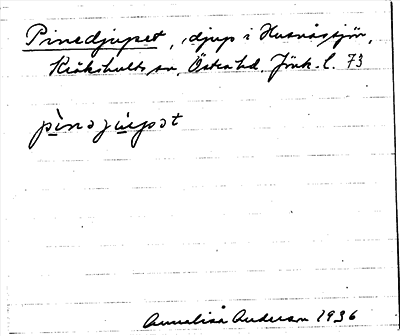 Pinedjupet, djup i Husnässjön,
Kråkshults sn, Östra hd. Jönk. l. 73
pìnəjùpət
Annalisa Anderson 1936